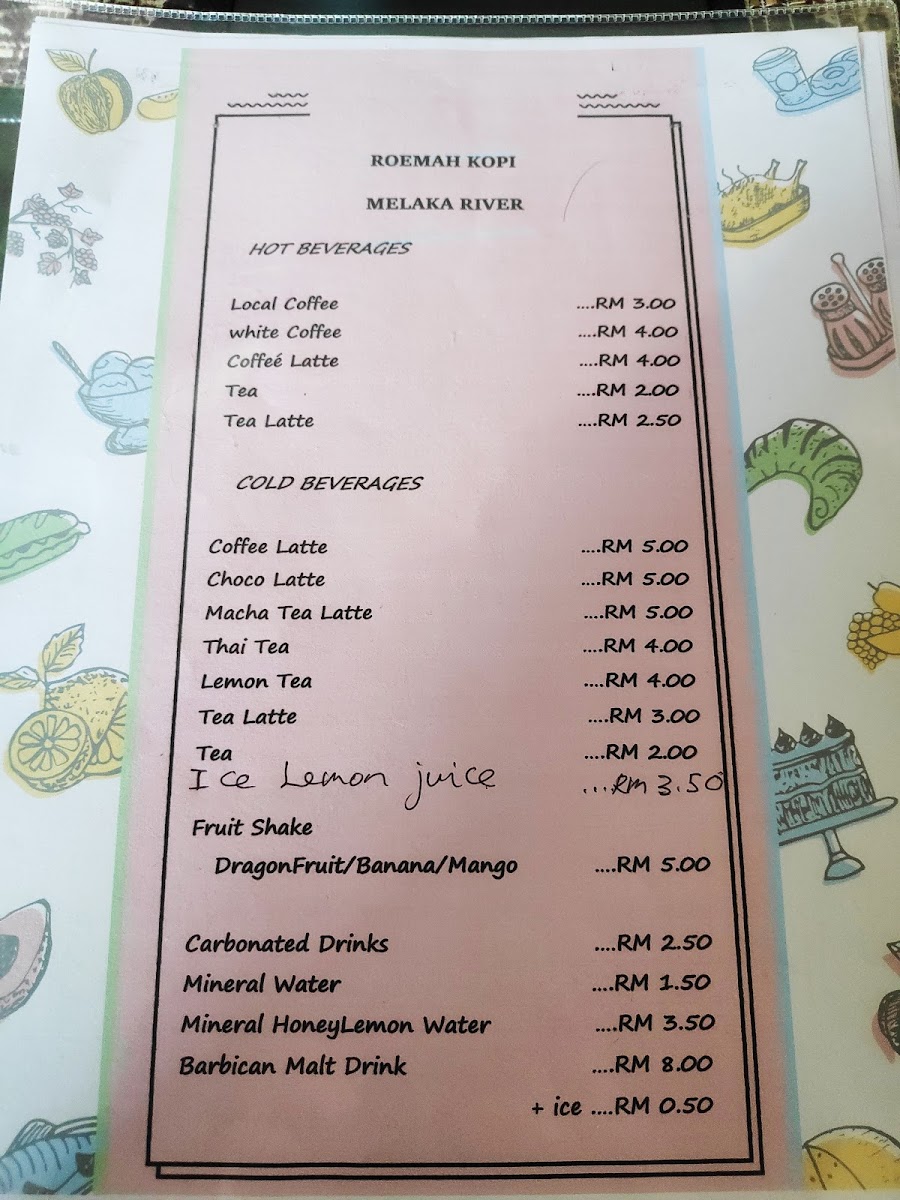 ROEMAH KOPI
MELAKA RIVER
HOT BEVERAGES
Local Coffee ....RM 3.00
white Coffee ....RM 4.00
Coffeé Latte ....RM 4.00
Tea ....RM 2.00
Tea Latte ....RM 2.50
COLD BEVERAGES
Coffee Latte ....RM 5.00
Choco Latte ....RM 5.00
Macha Tea Latte ....RM 5.00
Thai Tea ....RM 4.00
Lemon Tea ....RM 4.00
Tea Latte ....RM 3.00
Tea ....RM 2.00
Ice Lemon juice ...RM 3.50
Fruit Shake
DragonFruit/Banana/Mango ....RM 5.00
Carbonated Drinks ....RM 2.50
Mineral Water ....RM 1.50
Mineral HoneyLemon Water ....RM 3.50
Barbican Malt Drink ....RM 8.00
+ ice ....RM 0.50